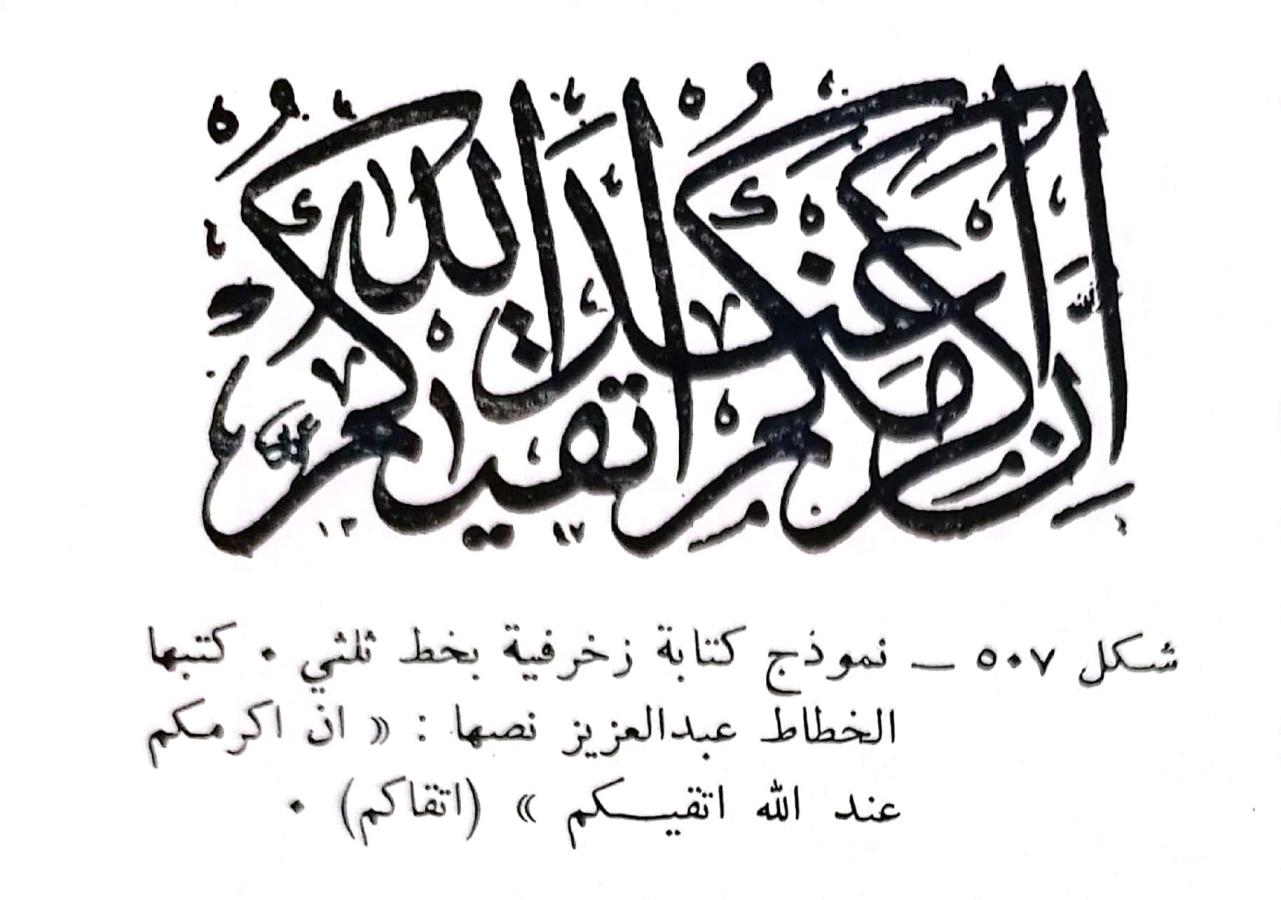 إن أكرمكم عند الله اتقيكم
شكل ٥٠٧ ــ نموذج كتابة زخرفية بخط ثلثي . كتبها
الخطاط عبدالعزيز نصها : « ان اكرمكم
عند الله اتقيـــكم » (اتقاكم) .